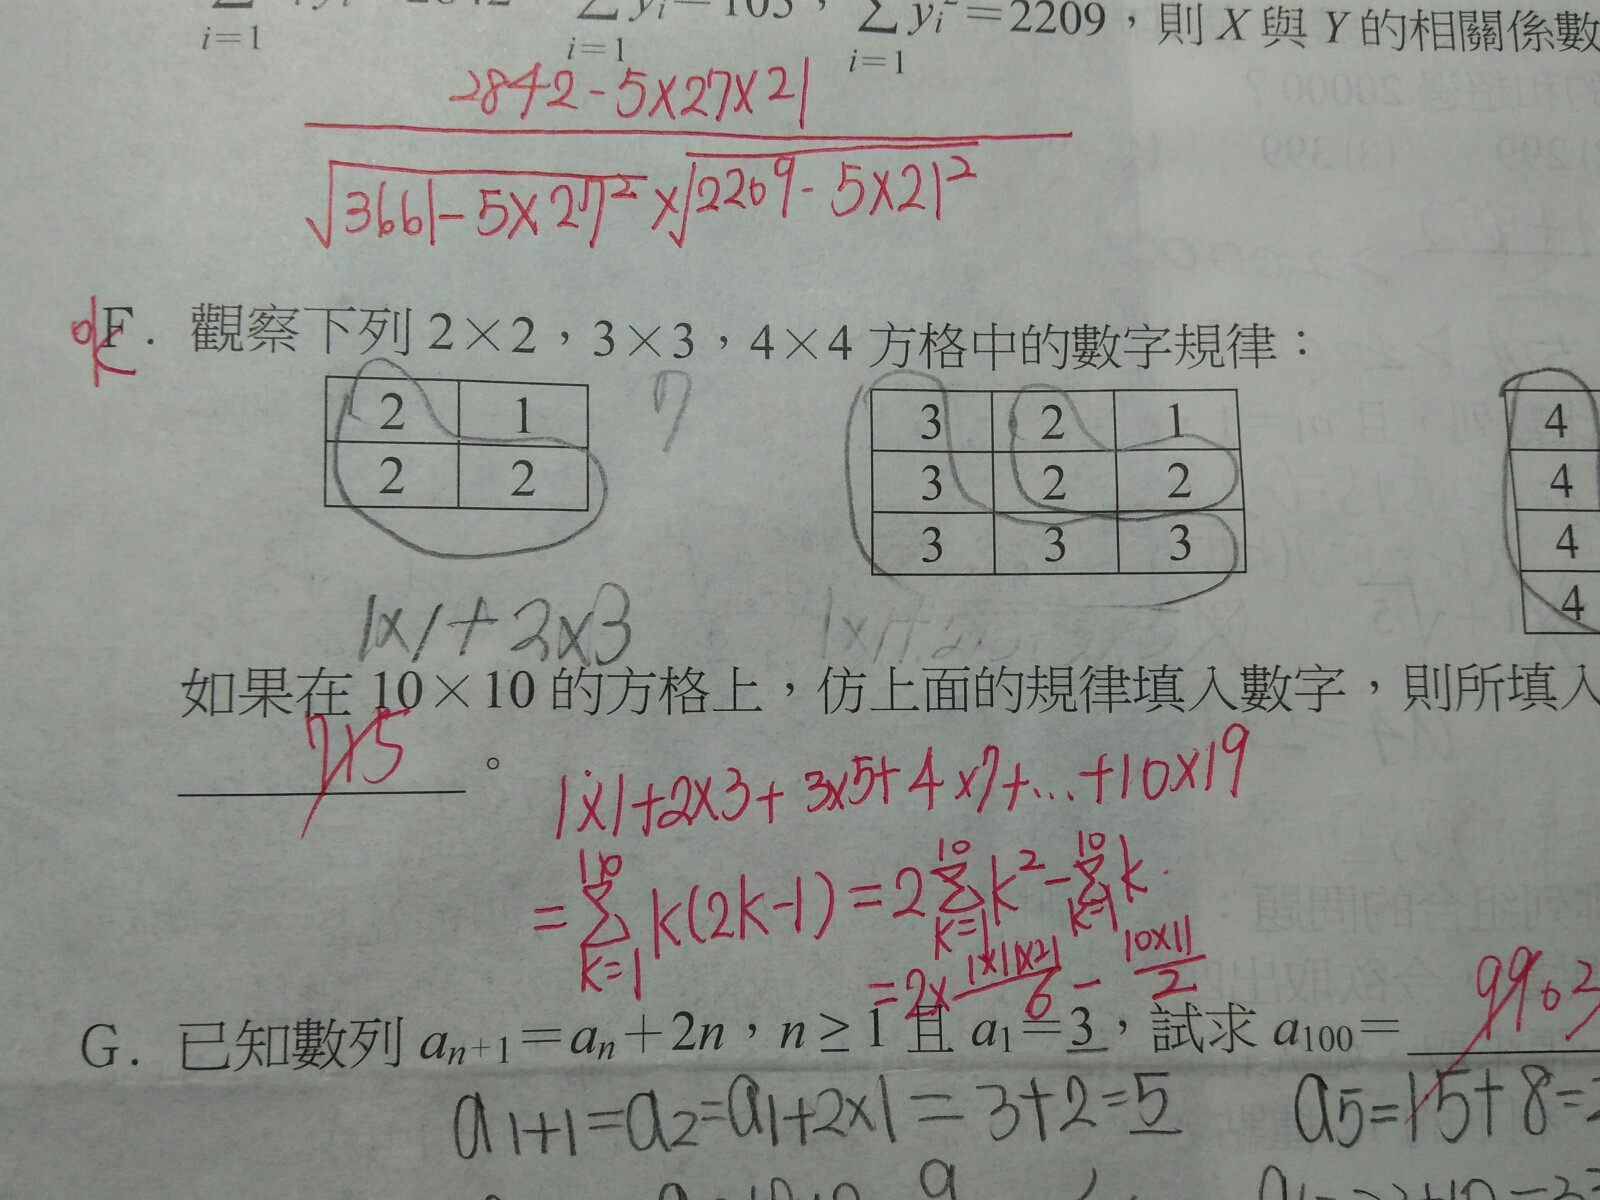 ∑ yᵢ=105，∑ yᵢ²=2209，則 X 與 Y 的相關係數
i=1 i=1 i=1
2842-5×27×21
√3661-5×27² ×√2209-5×21²
F. 觀察下列 2×2，3×3，4×4 方格中的數字規律：
2 1 7
2 2
3 2 1
3 2 2
3 3 3
4
4
4
4
1×1+2×3
如果在 10×10 的方格上，仿上面的規律填入數字，則所填入
715 。
1×1+2×3+3×5+4×7+…+10×19
=∑k(2k-1)=2∑k²-∑k
10 k=1 10 k=1 10 k=1
=2× 1×11×21/6 - 10×11/2
G. 已知數列 aₙ₊₁=aₙ+2n，n≥1 且 a₁=3，試求 a₁₀₀= 9903
a₁₊₁=a₂=a₁+2×1=3+2=5 a₅=15+8=